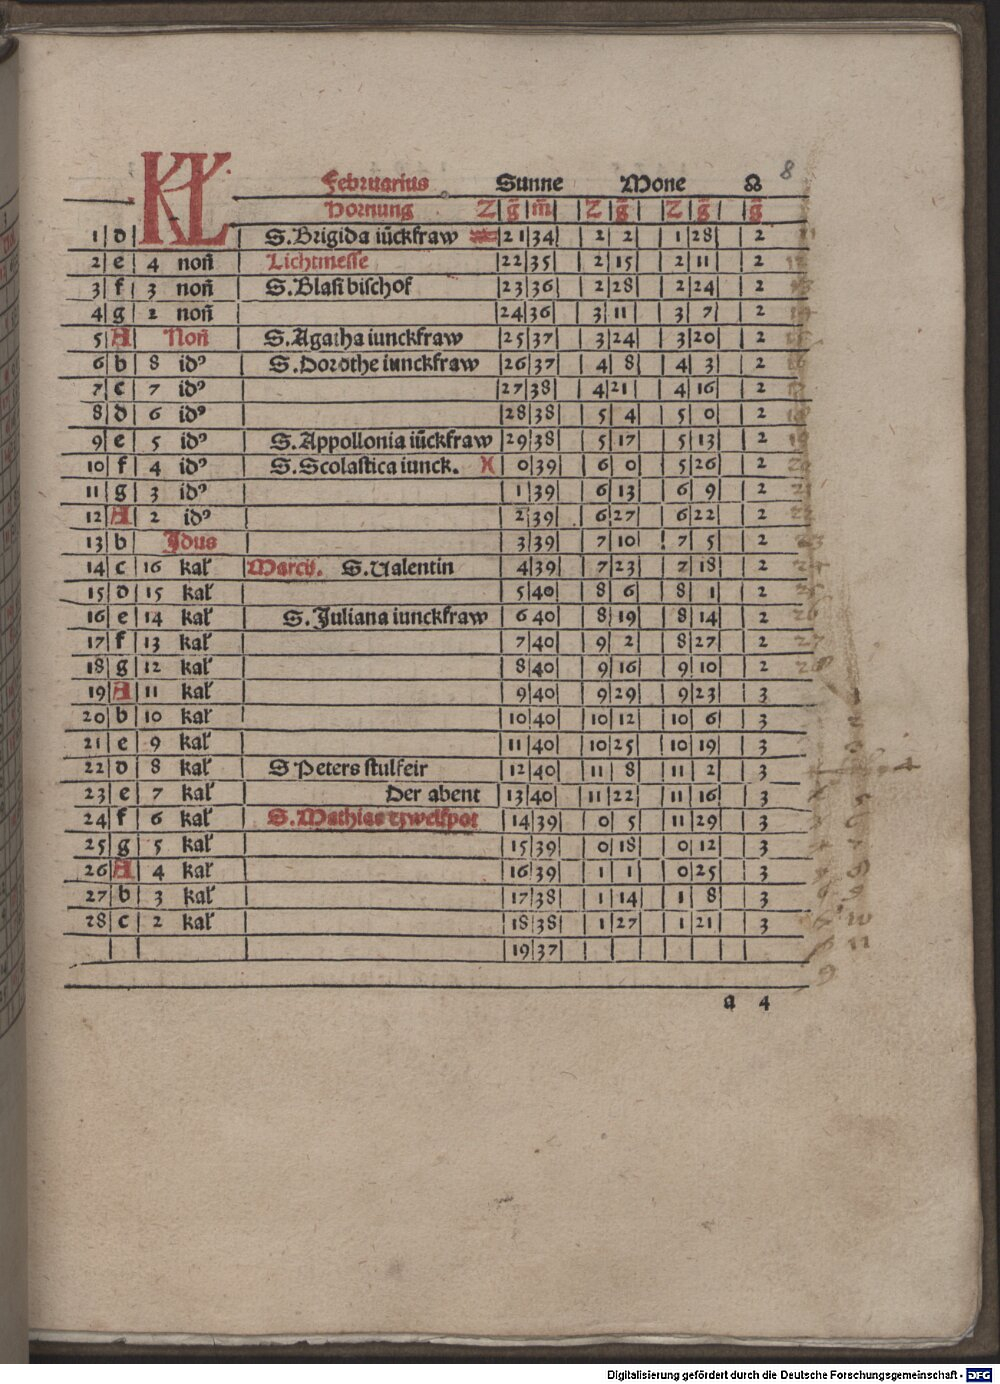 8
KL Februarius Sunne Mone ☊
Hornung Z g̃ m̃ Z g̃ Z g̃ g̃
1 d S.Brigida iũckfraw 21 34 2 2 1 28 2
2 e 4 non̄ Lichtmesse 22 35 2 15 2 11 2
3 f 3 non̄ S.Blasi bischof 23 36 2 28 2 24 2
4 g 2 non̄ 24 36 3 11 3 7 2
5 A Non̄ S.Agatha iunckfraw 25 37 3 24 3 20 2
6 b 8 idꝰ S.Dorothe iunckfraw 26 37 4 8 4 3 2
7 c 7 idꝰ 27 38 4 21 4 16 2
8 d 6 idꝰ 28 38 5 4 5 0 2
9 e 5 idꝰ S.Appollonia iũckfraw 29 38 5 17 5 13 2
10 f 4 idꝰ S.Scolastica iunck. ♓ 0 39 6 0 5 26 2
11 g 3 idꝰ 1 39 6 13 6 9 2
12 A 2 idꝰ 2 39 6 27 6 22 2
13 b Idus 3 39 7 10 7 5 2
14 c 16 kał Marcij. S.Valentin 4 39 7 23 7 18 2
15 d 15 kał 5 40 8 6 8 1 2
16 e 14 kał S.Juliana iunckfraw 6 40 8 19 8 14 2
17 f 13 kał 7 40 9 2 8 27 2
18 g 12 kał 8 40 9 16 9 10 2
19 A 11 kał 9 40 9 29 9 23 3
20 b 10 kał 10 40 10 12 10 6 3
21 c 9 kał 11 40 10 25 10 19 3
22 d 8 kał S Peters stulfeir 12 40 11 8 11 2 3
23 e 7 kał Der abent 13 40 11 22 11 16 3
24 f 6 kał S.Mathias tzwelfpot 14 39 0 5 11 29 3
25 g 5 kał 15 39 0 18 0 12 3
26 A 4 kał 16 39 1 1 0 25 3
27 b 3 kał 17 38 1 14 1 8 3
28 c 2 kał 18 38 1 27 1 21 3
19 37
a 4
Digitalisierung gefördert durch die Deutsche Forschungsgemeinschaft - DFG